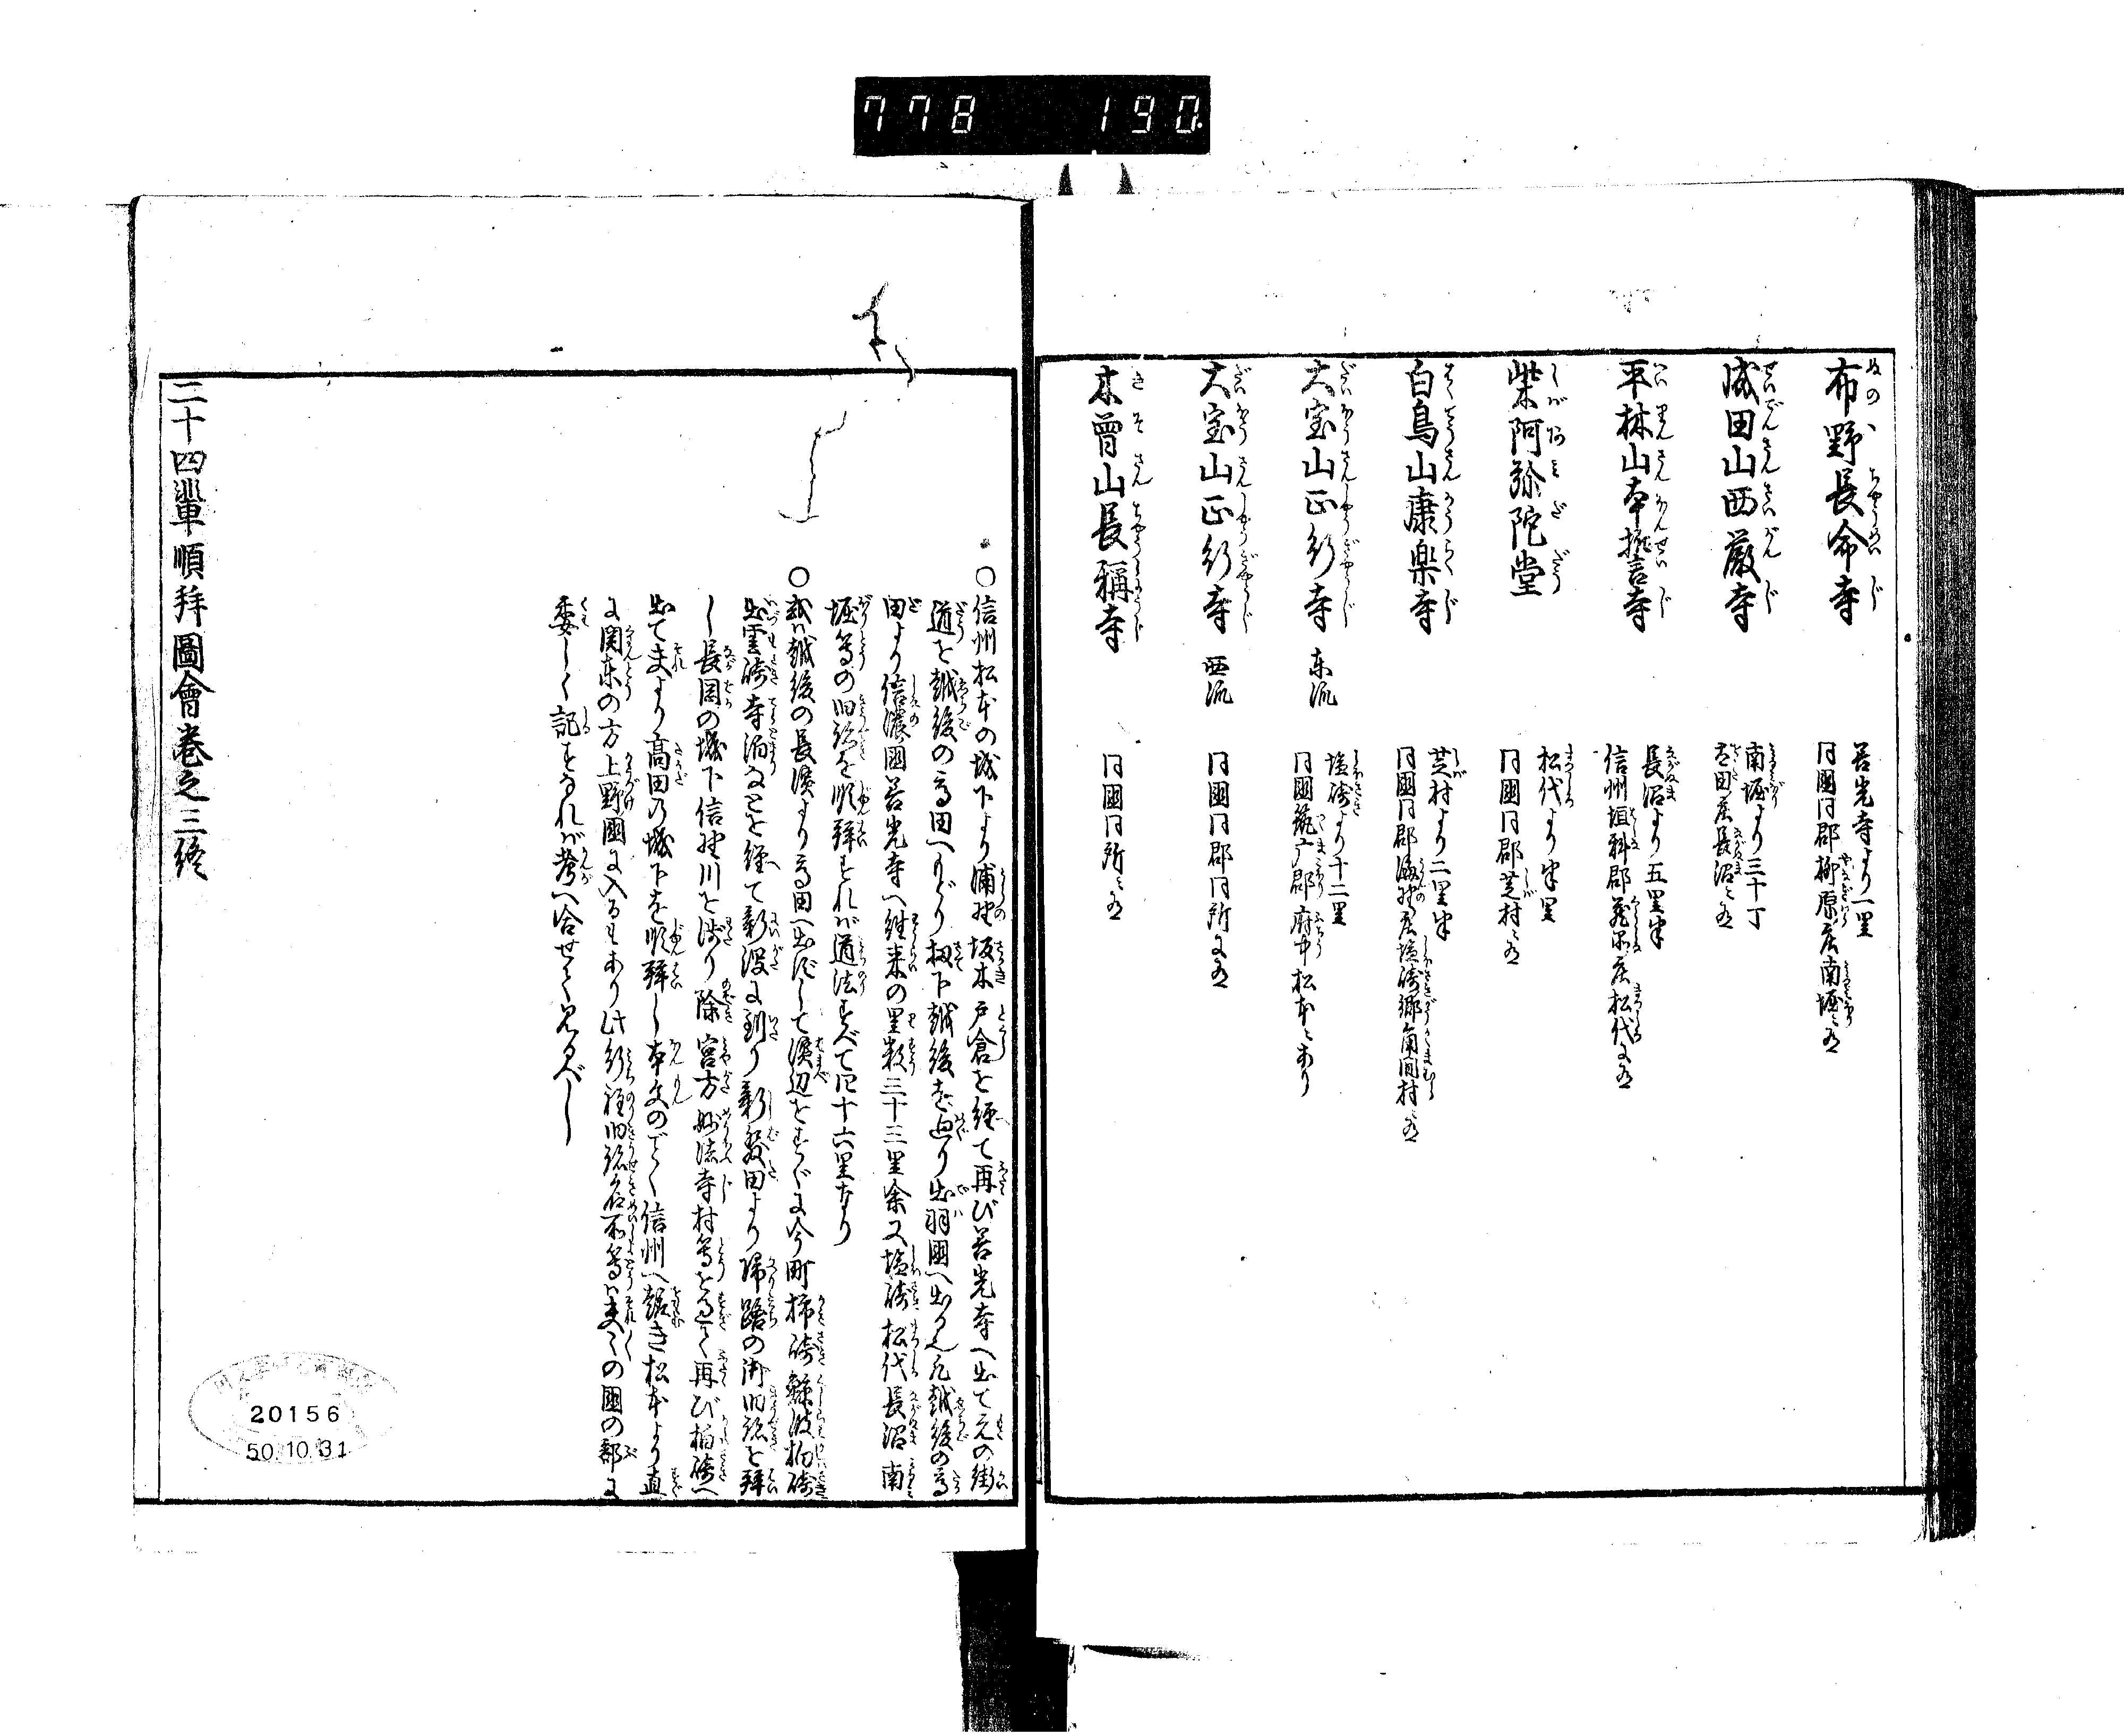 778 190
布野長命寺
善光寺より一里
同國同郡柳原庄南堀ニ有
成田山西厳寺
南堀より三十丁
太田庄長沼ニ有
平林山本誓寺
長沼より五里半
信州埴科郡倉科庄松代に有
柴阿弥陀堂
松代より半里
同國同郡芝村ニ有
白鳥山康楽寺
芝村より二里半
同國同郡海野庄塩崎郷角間村ニ有
大宝山正行寺 東流
塩崎より十二里
同國筑广郡府中松本ニあり
大宝山正行寺 西流
同國同郡同所に有
木曽山長稱寺
同國同所ニ有
○信州松本の城下より浦野坂木戸倉を經て再び善光寺へ出て元の街
道を越後の高田へもどり扨下越後を廻り出羽國へ出るん凡越後の高
田より信濃國善光寺へ往来の里数三十三里余又塩崎松代長沼南
堀等の旧跡を順拝すれバ道法すべて四十六里なり
○或ハ越後の長濱より高田へ出ずして濱辺をすぐに今町柿崎鯨波柏崎
出雲崎寺泊などを経て新潟に到り新發田より帰路の御旧跡を拝
し長岡の城下信野川を渉り除宮方妙法寺村等を過て再び柏崎へ
出て夫より高田の城下を順拝し本文のごとく信州へ趣き松本より直
に関東の方上野國に入るもあり此行程旧跡名所等ハ夫々の國の部に
委しく記すなれバ考へ合せて見るべし
二十四輩順拜圖會巻之三終
20156
50.10.31